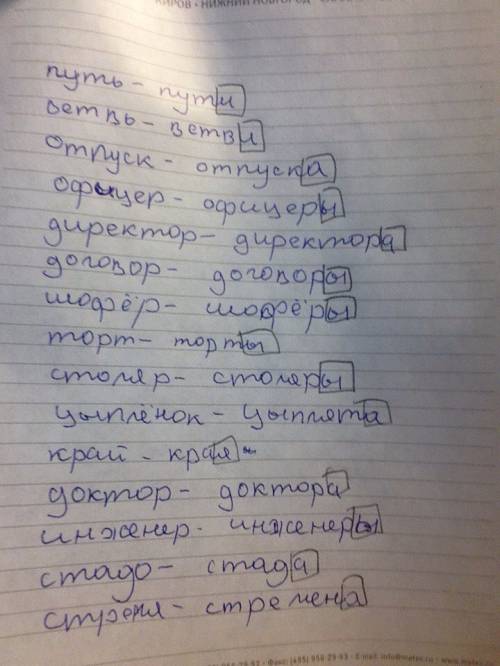 КИРОВ - НИЖНИЙ НОВГОРОД
путь - пути
ветвь - ветви
отпуск - отпуска
офицер - офицеры
директор - директора
договор - договоры
шофёр - шофёры
торт - торты
столяр - столяры
цыплёнок - цыплята
край - края
доктор - доктора
инженер - инженеры
стадо - стада
стремя - стремена
Факс: (495) 956-29-93 E-mail: